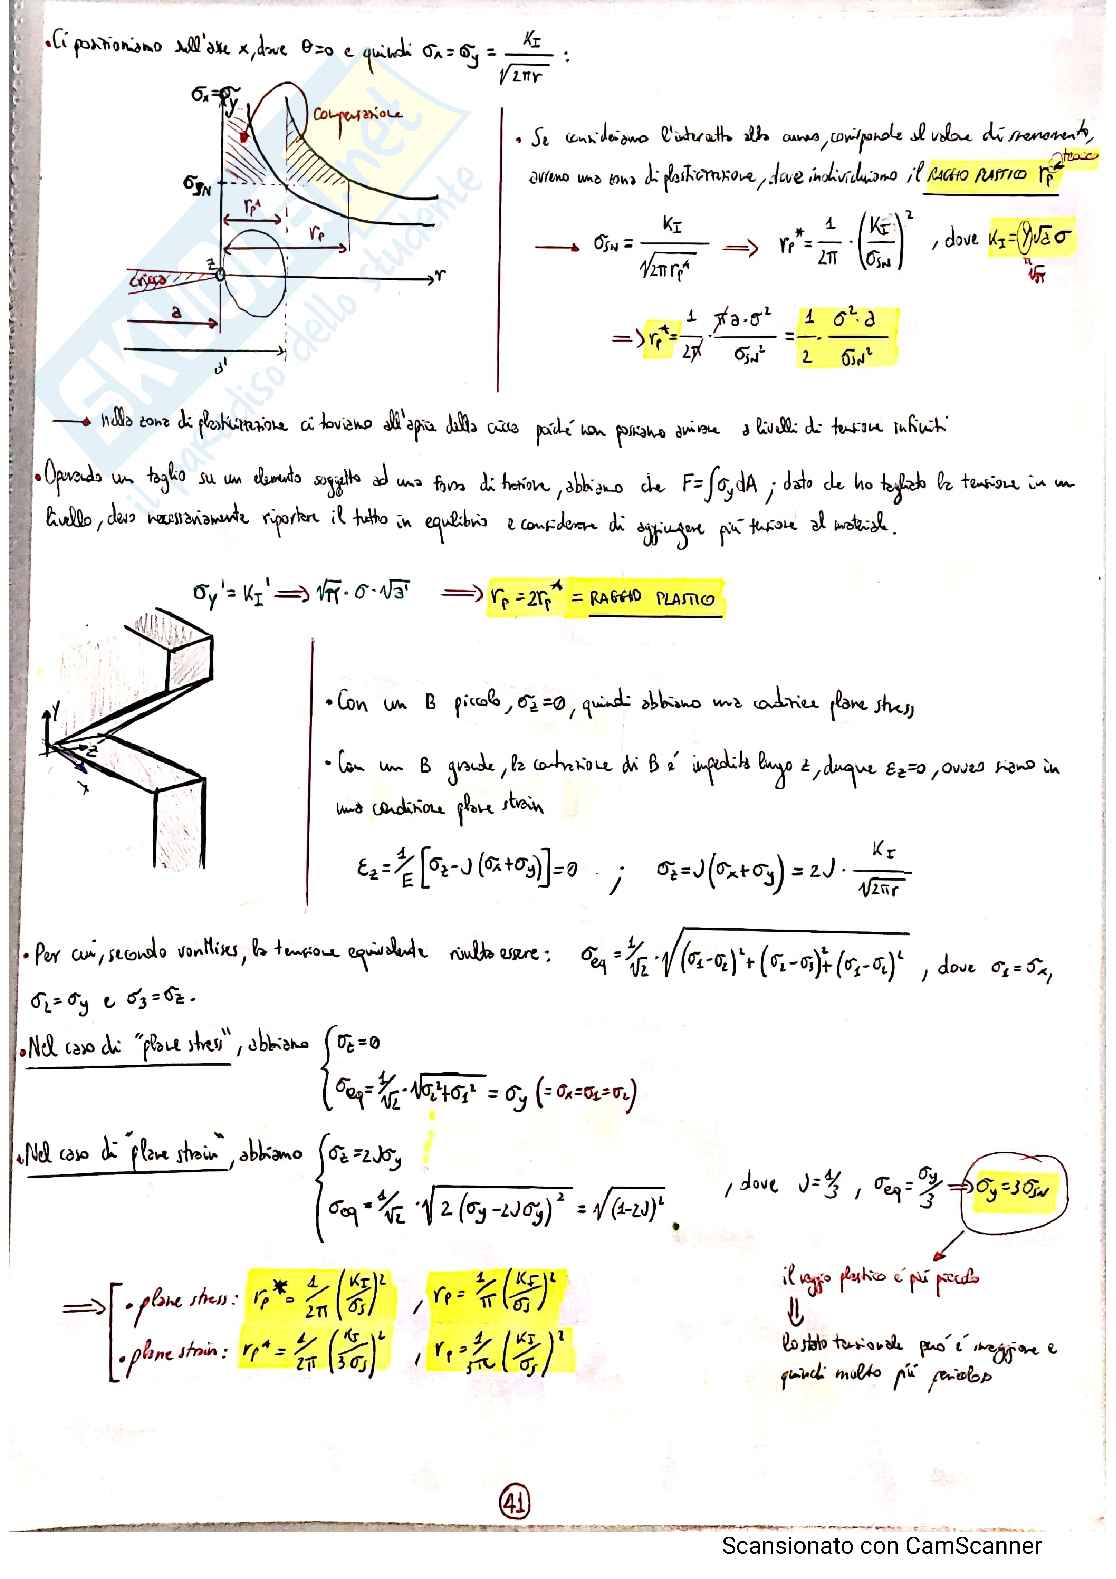 • Ci posizioniamo sull'asse x, dove θ=0 e quindi σx = σy = KI / √2πr :
σx=σy
compensazione
σsN
rp*
rp
z
r
cricca
a
a'
• Se consideriamo l'intercetta alla curva, corrisponde al valore di snervamento,
avremo una zona di plasticizzazione, dove individuiamo il RAGGIO PLASTICO rp* teorico
→ σsN = KI / √2πrp* ⇒ rp* = 1/2π · (KI/σsN)² , dove KI = Y√a σ
√π
⇒ rp* = 1/2π · πa·σ²/σsN² = 1/2 · σ²·a/σsN²
→ nella zona di plasticizzazione ci troviamo all'apice della cricca poiché non possiamo arrivare a livelli di tensione infiniti
• Operando un taglio su un elemento soggetto ad una forza di trazione, abbiamo che F=∫σy dA ; dato che ho tagliato la tensione in un
livello, devo necessariamente riportare il tutto in equilibrio e considerare di aggiungere più tensione al materiale.
σy' = KI' ⇒ √π · σ · √a' ⇒ rp = 2rp* = RAGGIO PLASTICO
Y
z
x
• Con un B piccolo, σz=0, quindi abbiamo una condizione plane stress
• Con un B grande, la contrazione di B è impedita lungo z, dunque εz=0, ovvero siamo in
una condizione plane strain
εz = 1/E [σz-ν(σx+σy)] = 0 ; σz = ν(σx+σy) = 2ν · KI / √2πr
• Per cui, secondo vonMises, la tensione equivalente risulta essere: σeq = 1/√2 · √(σ1-σ2)²+(σ2-σ3)²+(σ1-σ2)² , dove σ1=σx,
σ2=σy e σ3=σz.
• Nel caso di "plane stress", abbiamo { σz=0
σeq = 1/√2 · √σ2²+σ1² = σy (=σx=σ1=σ2)
• Nel caso di "plane strain", abbiamo { σz=2νσy
σeq = 1/√2 · √2(σy-2νσy)² = √(1-2ν)² , dove ν=1/3 , σeq = σy/3 ⇒ σy=3σsN
il raggio plastico è più piccolo
⇓
lo stato tensionale però è maggiore e
quindi molto più pericoloso
⇒ [ • plane stress: rp* = 1/2π (KI/σs)² , rp = 1/π (KI/σs)²
• plane strain: rp* = 1/2π (KI/3σs)² , rp = 1/3π (KI/σs)²
41
Scansionato con CamScanner
SKUOLA.net
il paradiso dello studente